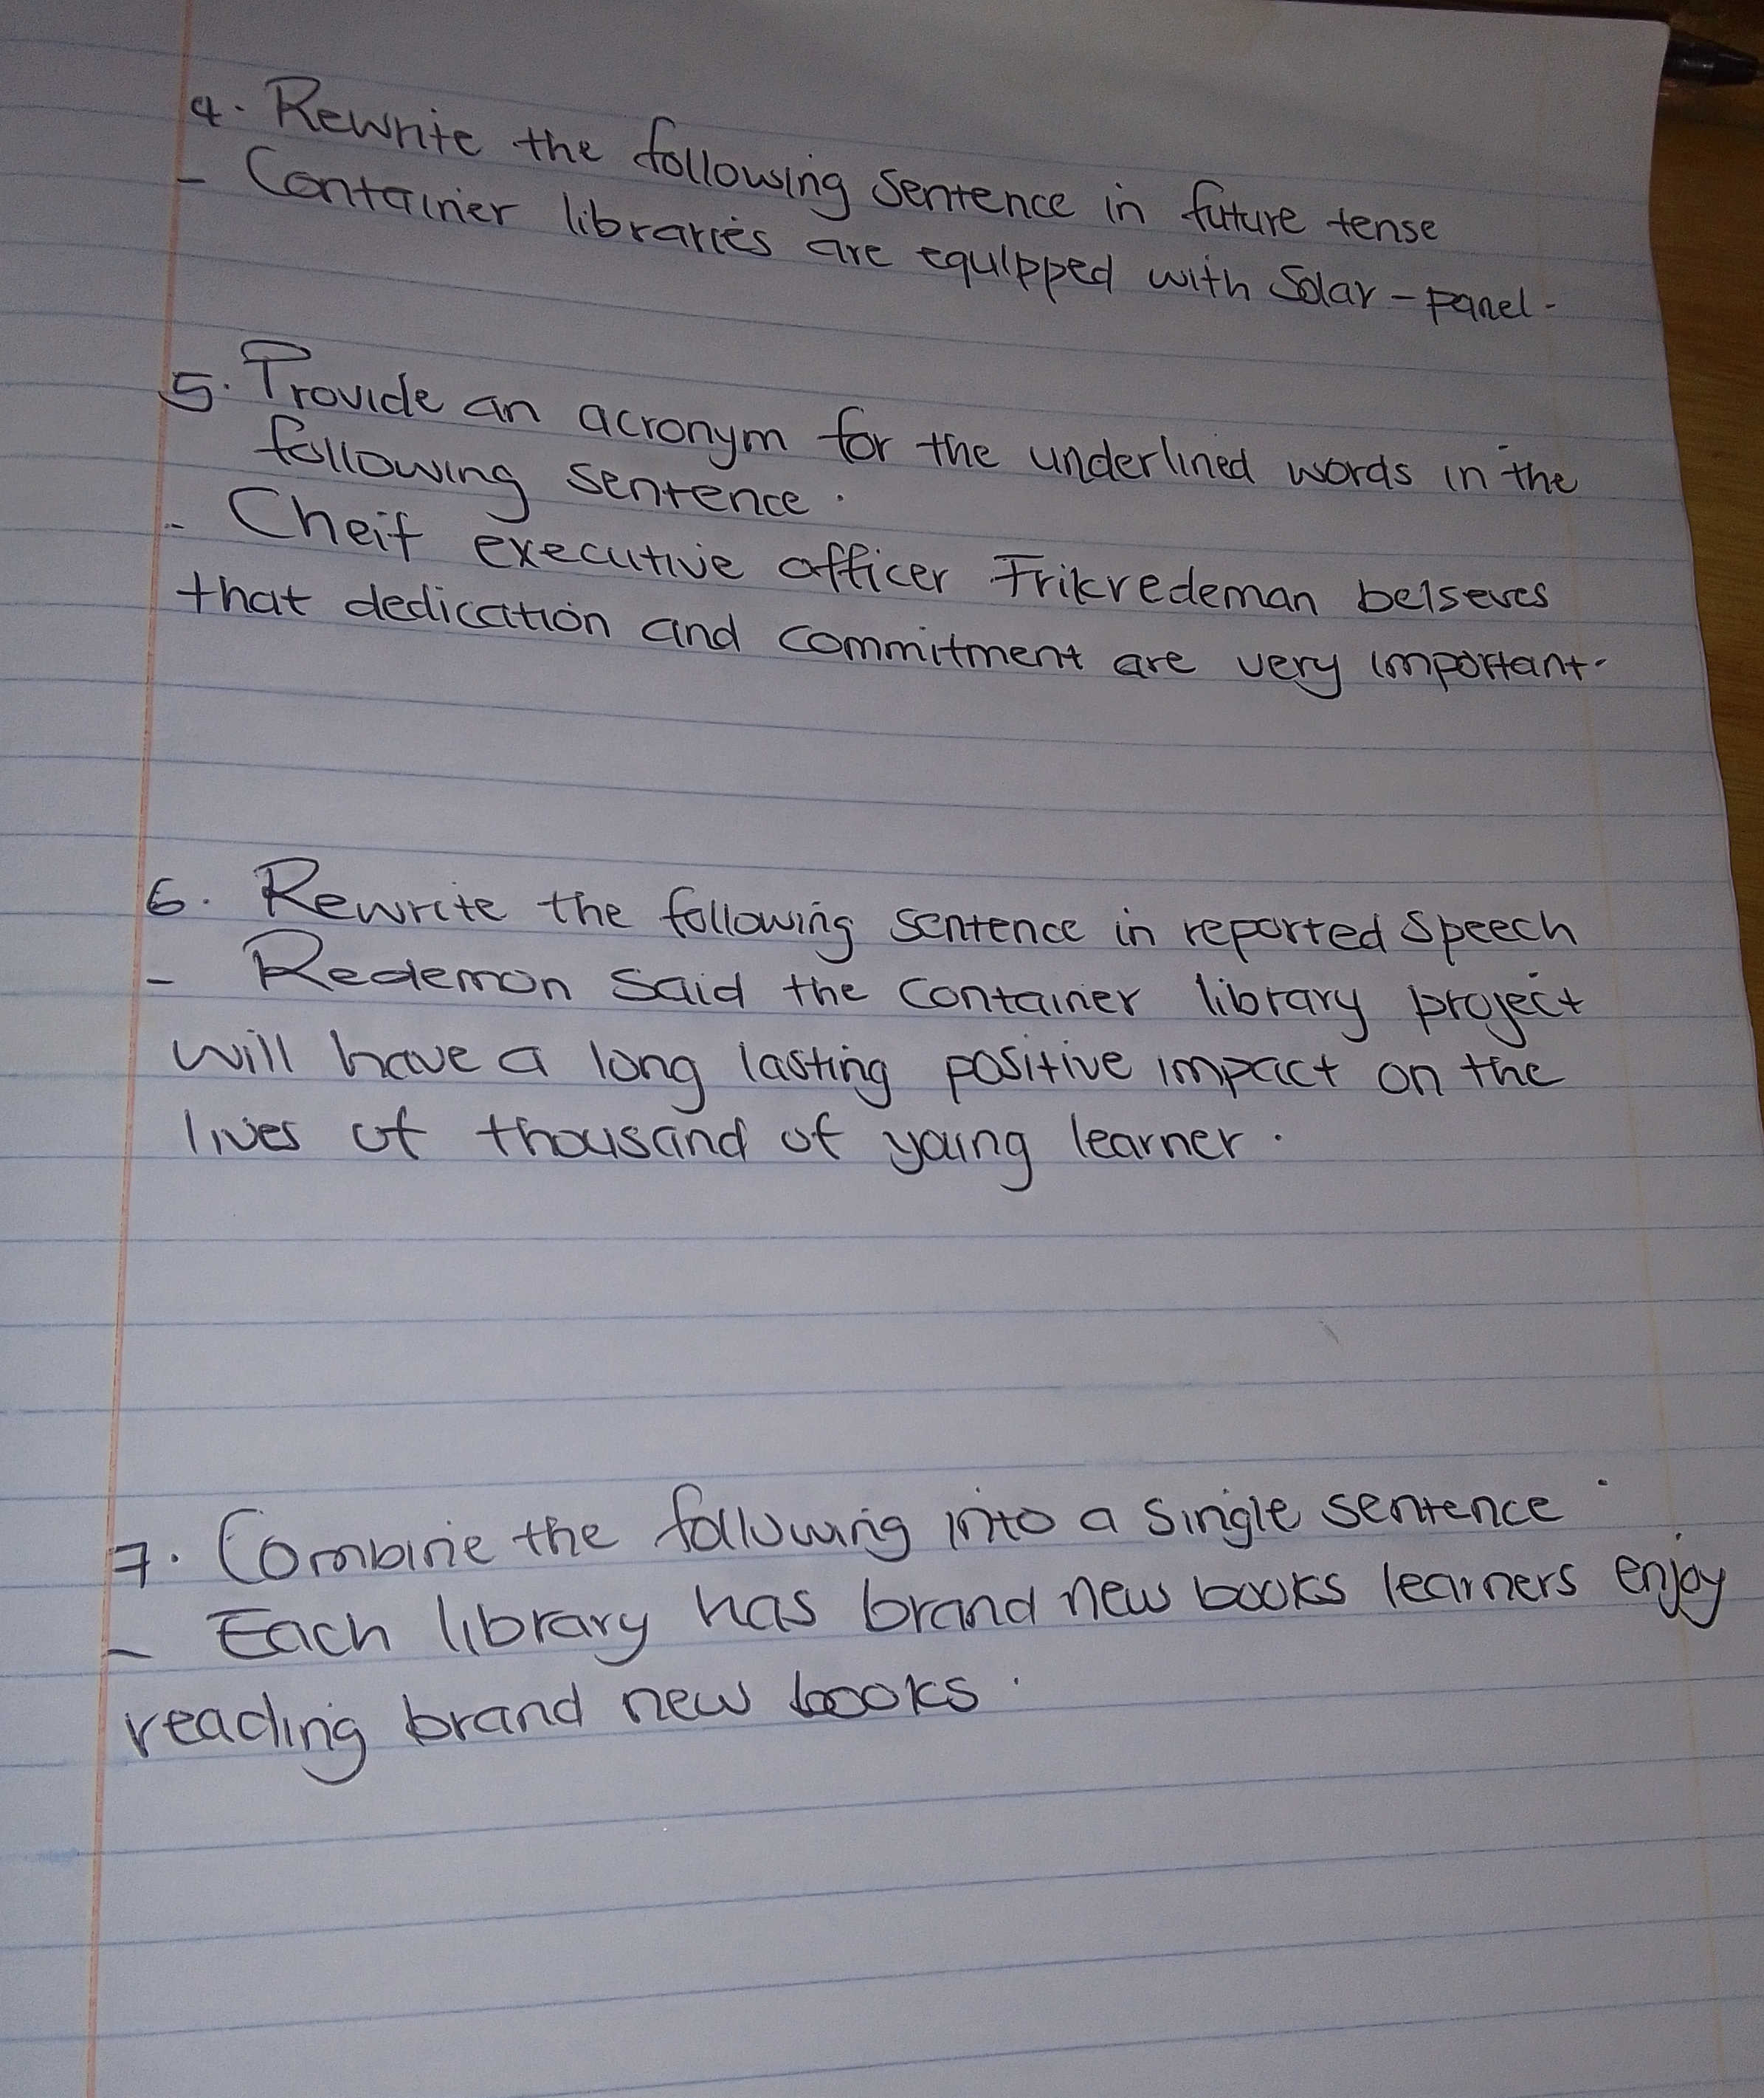 4. Rewrite the following sentence in future tense
- Container libraries are equipped with Solar-panel.
5. Provide an acronym for the underlined words in the
following sentence.
- Cheif executive officer Frikredeman belseves
that dedication and commitment are very important.
6. Rewrite the following sentence in reported speech
- Redemon said the container library project
will have a long lasting positive impact on the
lives of thousand of young learner.
7. Combine the following into a single sentence.
- Each library has brand new books learners enjoy
reading brand new books.